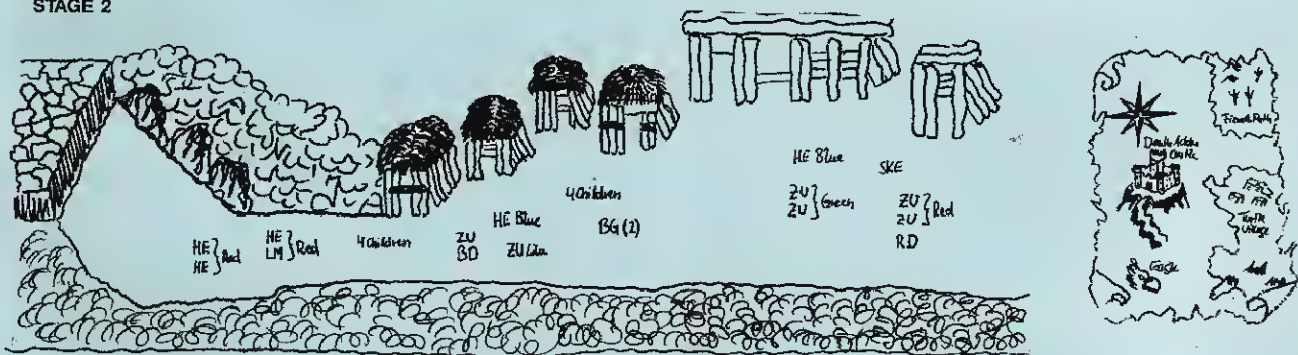 STAGE 2
HE
HE } Red
HE
LM } Red
4 Children
ZU
BD
HE Blue
ZU
4 Children
BG (2)
HE Blue
ZU
ZU } Green
SKE
ZU
ZU } Red
RD
Death Adder
Castle
Turtle
Village
Eagle